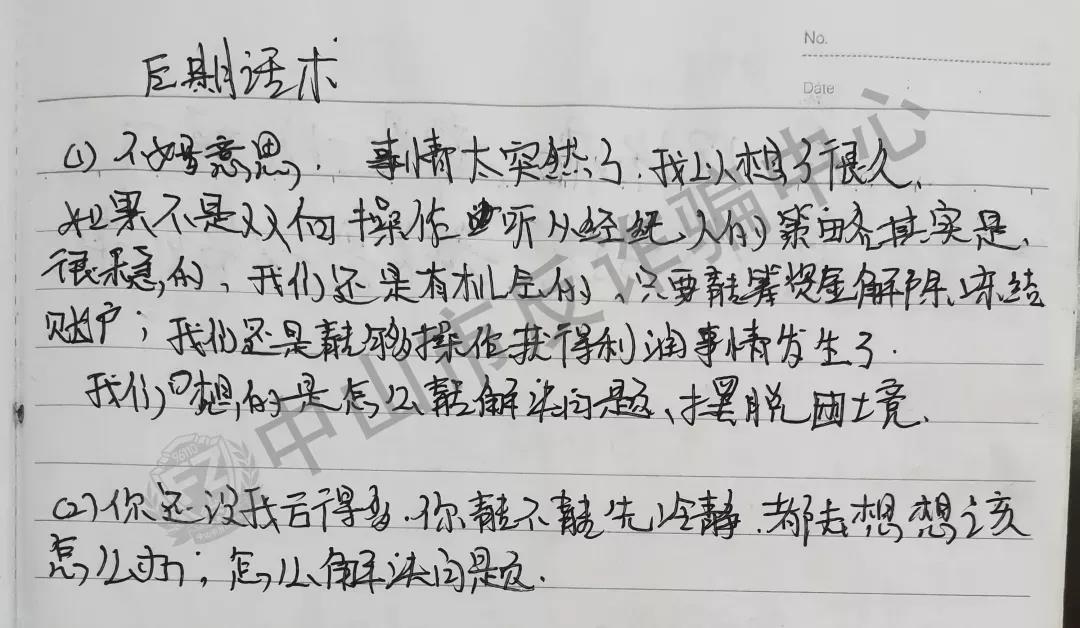 No.
Date
后期话术
(1) 不好意思, 事情太突然了.我以想了很久,
如果不是双向操作 听从经纪人的策略其实是,
很稳的,我们还是有机会的,只要能筹资金解除冻结
账户;我们还是能够操作获得利润事情发生了.
我们 想的是怎么能解决问题、摆脱困境.
(2)你还没我亏得多.你能不能先冷静.都去想想该
怎么办;怎么解决问题.
中山市反诈骗中心